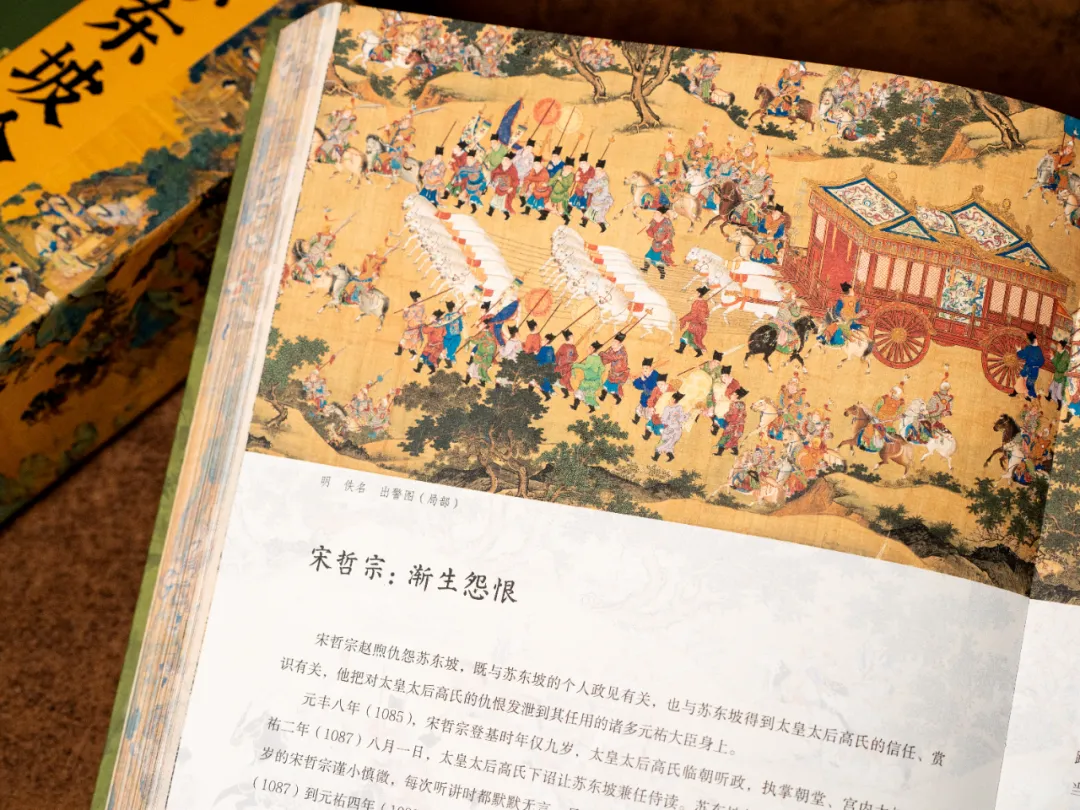 东坡
明 佚名 出警图（局部）
宋哲宗：渐生怨恨
宋哲宗赵煦仇怨苏东坡，既与苏东坡的个人政见有关，也与苏东坡得到太皇太后高氏的信任、赏
识有关，他把对太皇太后高氏的仇恨发泄到其任用的诸多元祐大臣身上。
元丰八年（1085），宋哲宗登基时年仅九岁，太皇太后高氏临朝听政，执掌朝堂、宫内大
祐二年（1087）八月一日，太皇太后高氏下诏让苏东坡兼任侍读。苏东坡
岁的宋哲宗谨小慎微，每次听讲时都默默无言
（1087）到元祐四年（
当